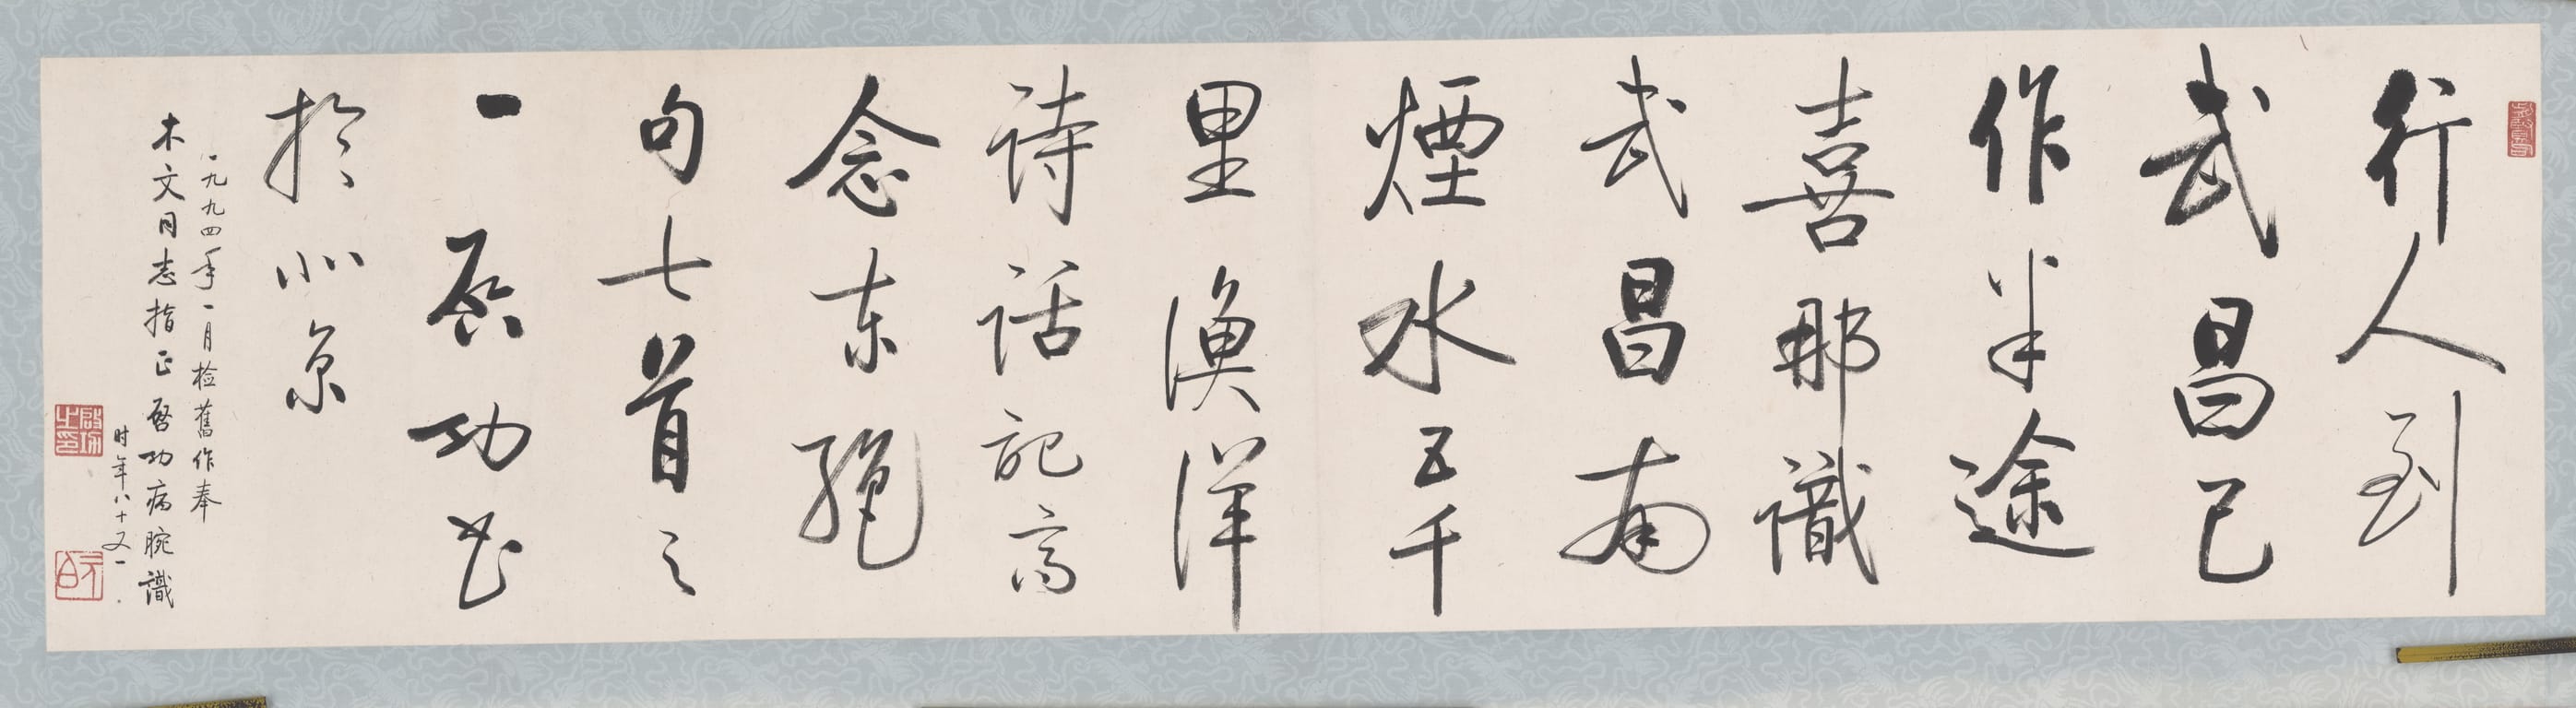 行人到
武昌已
作半途
喜那識
武昌南
煙水五千
里漁洋
詩話記高
念東絕
句七首之
一啟功书
於北京
一九九四年一月检舊作奉
木文同志指正啓功病腕識
时年八十又一
啟功之印